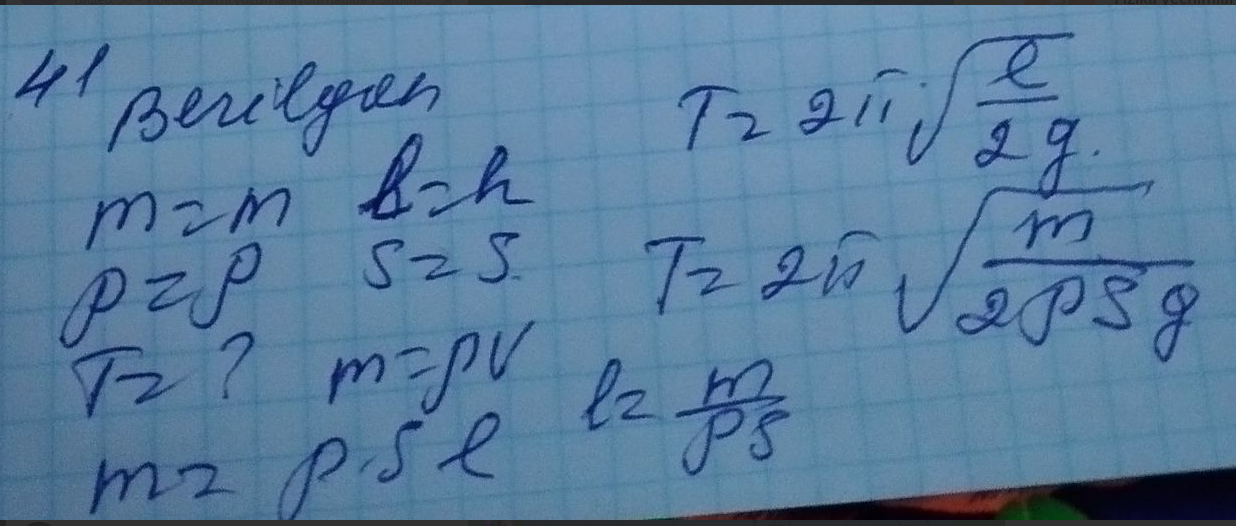 41 Berilgan
m=m ℓ=h
ρ=ρ S=S.
T=? m=ρV
m= ρ·S ℓ
ℓ= m/ρS
T= 2π√(ℓ/2g.)
T= 2π√(m/2ρSg)